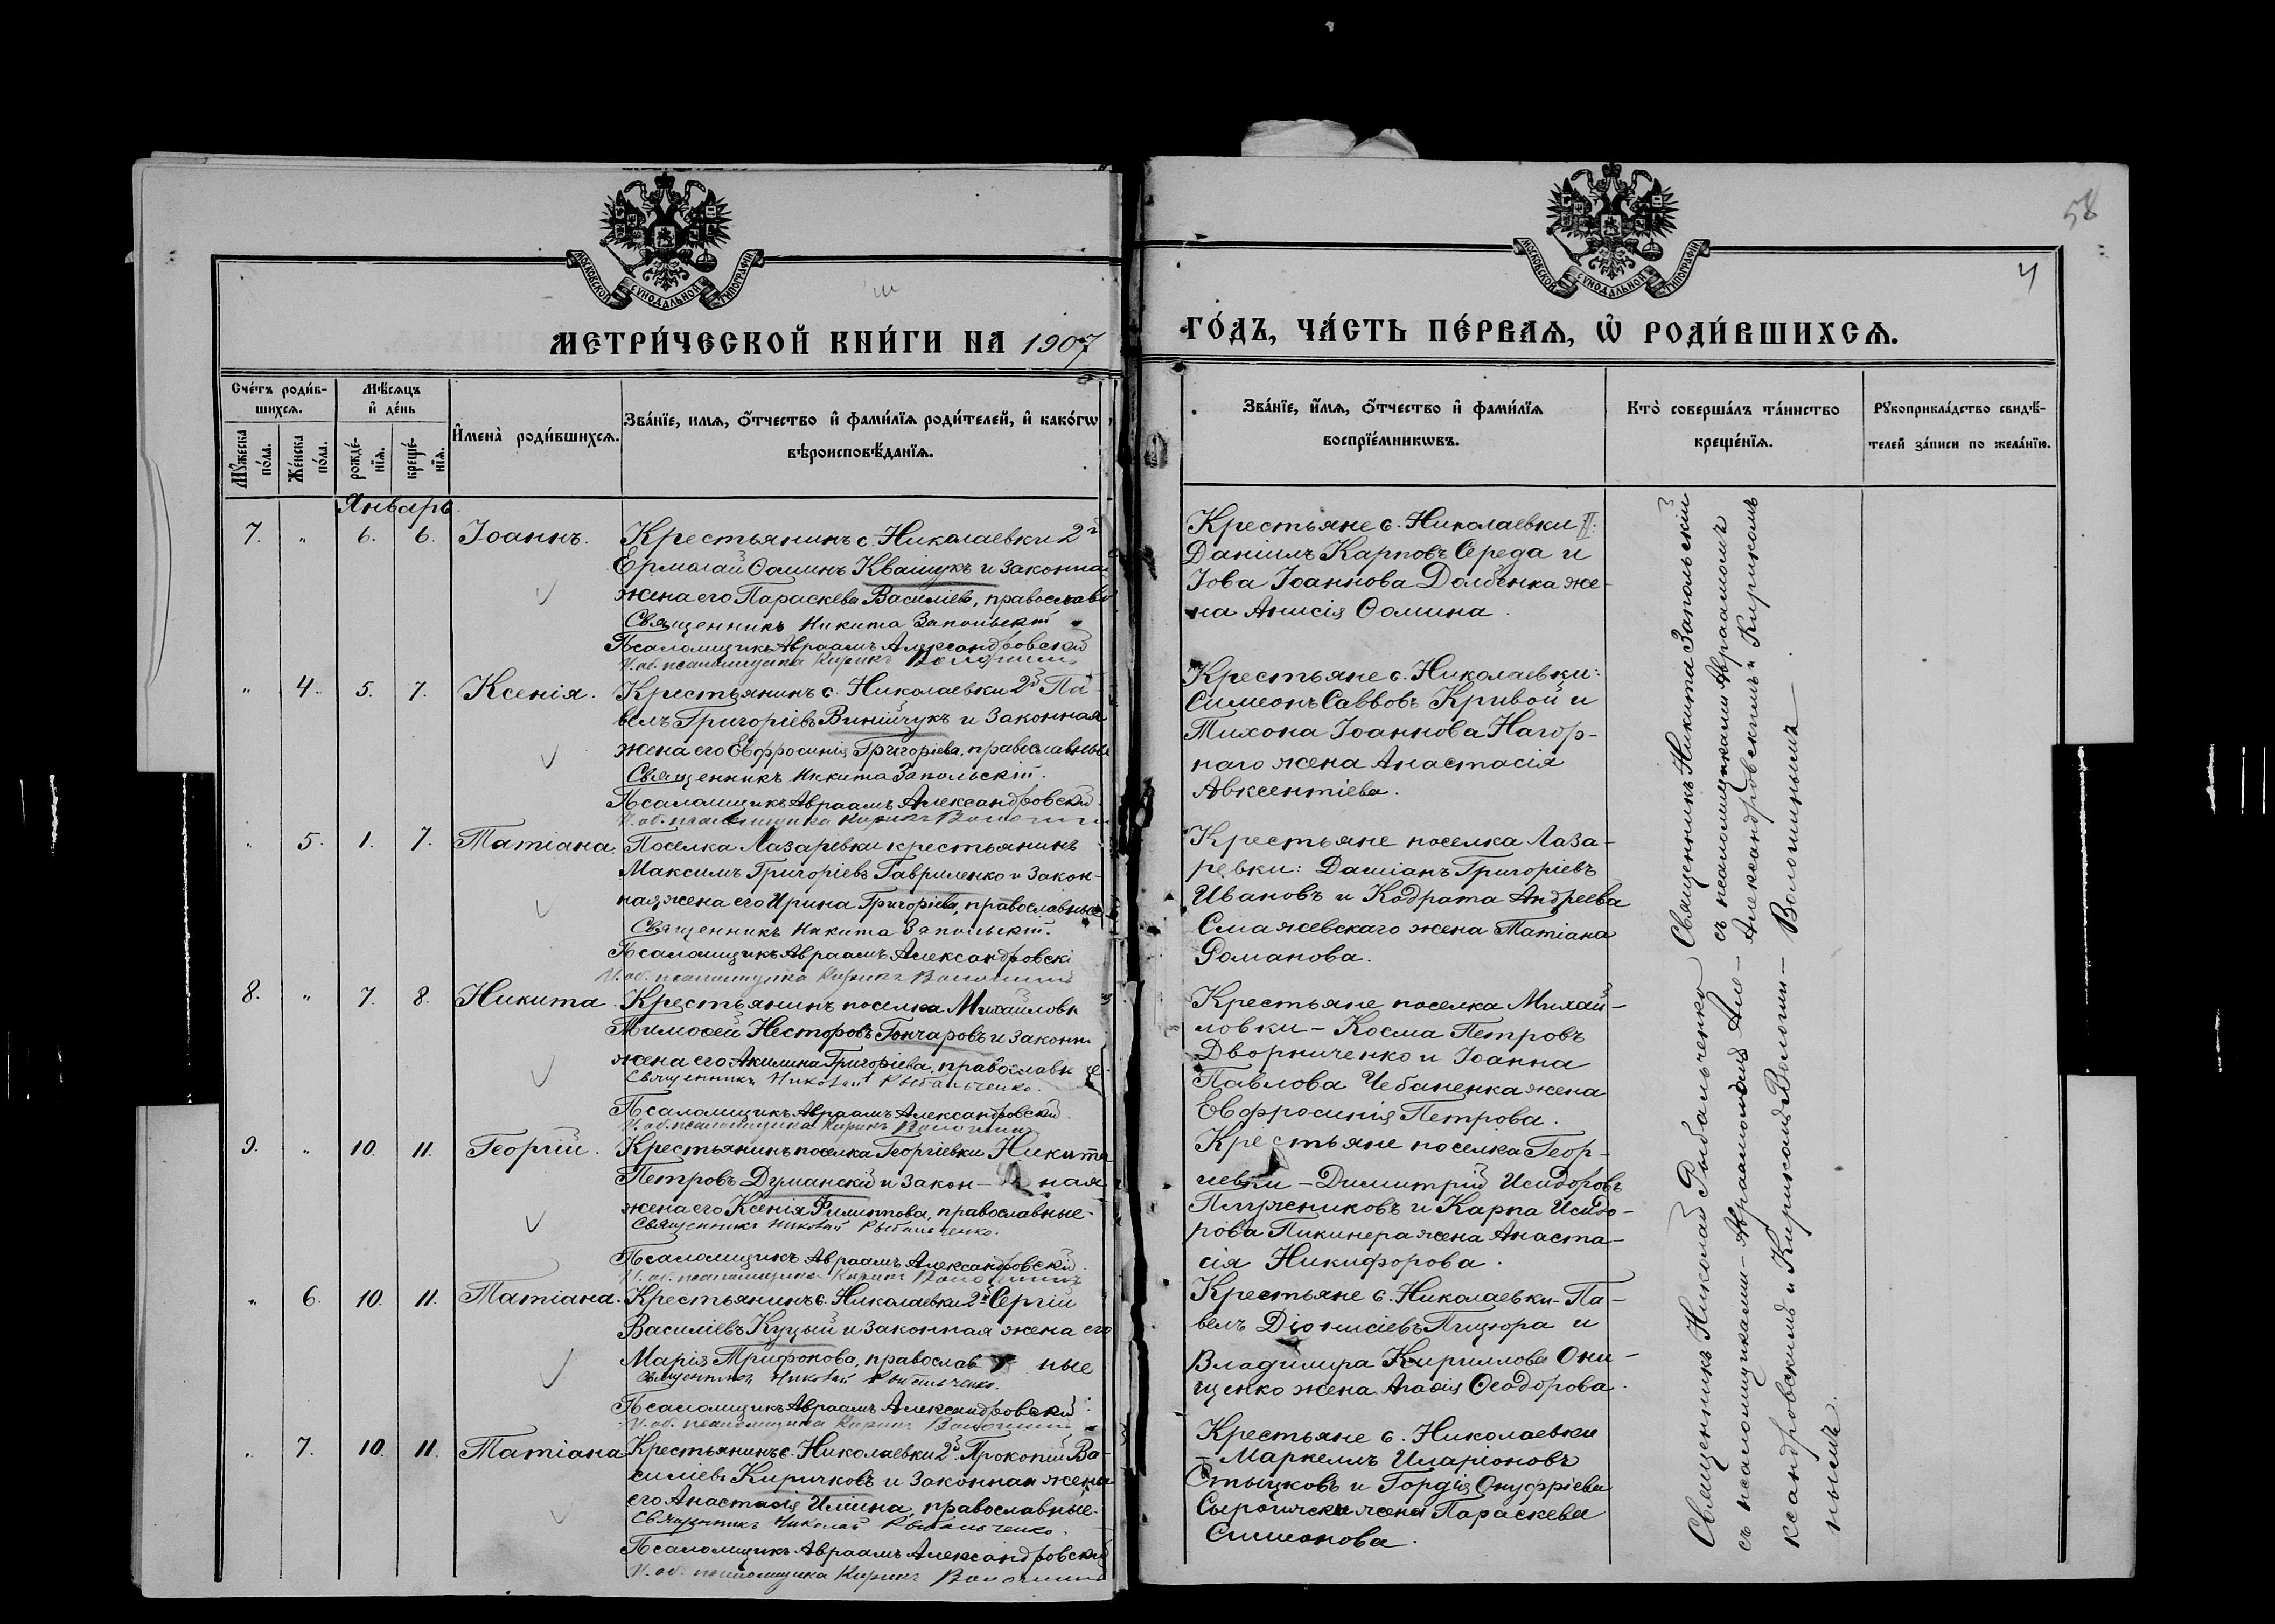 58
4
МОСКОВСКОЙ СѴНОДАЛЬНОЙ ТИПОГРАФІИ
МОСКОВСКОЙ СѴНОДАЛЬНОЙ ТИПОГРАФІИ
МЕТРИ́ЧЕСКОЙ КНИ́ГИ НА 1907
ГО́ДЪ, ЧА́СТЬ ПЕ́РВАѦ, Ѡ҆ РОДИ́ВШИХСѦ.
Сче́тъ роди́в-
шихсѧ.
Мѣ́сѧцъ
и҆ де́нь
Мꙋ́жеска
по́ла.
Же́нска
по́ла.
рожде́-
нїѧ.
креще́-
нїѧ.
И҆мена̀ роди́вшихсѧ.
Зва́нїе, имѧ, ѻ҆́тчество и҆ фами́лїѧ роди́телей, и҆ како́гѡ
вѣроисповѣ́данїѧ.
Зва́нїе, и҆́мѧ, ѻ҆́тчество и҆ фами́лїѧ
воспрїе́мникѡвъ.
Кто̀ соверша́лъ та́инство
креще́нїѧ.
Рꙋкоприкла́дство свидѣ́-
телей за́писи по жела́нїю.
Январь.
7. " 6. 6. Іоаннъ. Крестьянинъ с. Николаевки 2й
Ермолай Ѳоминъ Квашукъ и законная
жена его Параскева Васильева, православ
Священникъ Никита Запольскій
Псаломщикъ Авраамъ Александровскій
И. об. псаломщика Кирикъ Вологинъ
Крестьяне с. Николаевки II:
Даніилъ Карповъ Середа и
Іова Іоаннова Долбенка же-
на Анисія Ѳомина.
" 4. 5. 7. Ксенія. Крестьянинъ с. Николаевки 2й Па-
велъ Григоріевъ Винійчукъ и законная
жена его Евфросинія Григоріева, православные
Священникъ Никита Запольскій.
Псаломщикъ Авраамъ Александровскій.
И. об. псаломщика Кирикъ Вологинъ
Крестьяне с. Николаевки:
Симеонъ Савовъ Кривой и
Тихона Іоаннова Нагор-
наго жена Анастасія
Авксентіева.
" 5. 1. 7. Татіана. Поселка Лазаревки крестьянинъ
Максимъ Григоріевъ Гавриленко и закон-
ная жена его Ирина Григоріева, православные
Священникъ Никита Запольскій.
Псаломщикъ Авраамъ Александровскі
И. об. псаломщика Кирикъ Вологинъ
Крестьяне поселка Лаза-
ревки: Даміанъ Григоріевъ
Ивановъ и Кодрата Андреева
Смажевскаго жена Татіана
Романова.
8. " 7. 8. Никита. Крестьянинъ поселка Михайловк
Тимоѳей Несторовъ Гончаровъ и законн
жена его Акилина Григоріева, православн е-
Священникъ Николай Рыбальченко.
Псаломщикъ Авраамъ Александровскій.
И. об. псаломщика Кирикъ Вологинъ
Крестьяне поселка Михай-
ловки - Косма Петровъ
Дворниченко и Іоанна
Павлова Чебаненка жена
Евфросинія Петрова.
9. " 10. 11. Георгій. Крестьянинъ поселка Георгіевки Никита
Петровъ Думанскій и закон- ная
жена его Ксенія Филиппова, православные-
Священникъ Николай Рыбальченко.
Псаломщикъ Авраамъ Александровскій.
И. об. псаломщика Кирикъ Вологинъ
Крестьяне поселка Геор-
гіевки - Димитрій Исидоровъ
Плужниковъ и Карпа Исидо-
рова Пикинера жена Анаста-
сія Никифорова.
" 6. 10. 11. Татіана. Крестьянинъ с. Николаевки 2й Сергій
Василіевъ Куцый и законная жена его
Марія Трифонова, православ ные
Священникъ Николай Рыбальченко.
Псаломщикъ Авраамъ Александровскій
И. об. псаломщика Кирикъ Вологинъ
Крестьяне с. Николаевки - Па-
велъ Діонисіевъ Пицюра и
Владимира Кириллова Они-
щенко жена Агаѳія Ѳеодорова.
" 7. 10. 11. Татіана Крестьянинъ с. Николаевки 2й Прокопій Ва-
силіевъ Киричковъ и законная жена
его Анастасія Иліина, православные-
Священникъ Николай Рыбальченко.
Псаломщикъ Авраамъ Александровскій
И. об. псаломщика Кирикъ Вологинъ
Крестьяне с. Николаевки
- Маркеллъ Иларіоновъ
Стыцковъ и Гордія Онуфріева
жена Параскева
Симеонова.
Священникъ Никита Запольскій
съ псаломщиками Авраамомъ
Александровскимъ и Кирикомъ
Вологинымъ.
Священникъ Николай Рыбальченко
съ псаломщиками - Авраамомъ Але-
ксандровскимъ и Кирикомъ Вологи-
нымъ.